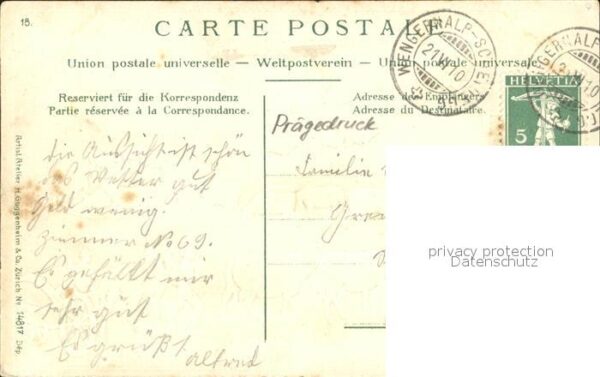 18.
CARTE POSTALE
Union postale universelle — Weltpostverein — Union postale universale
WENGERNALP-SCHEI
21.VI.10
HELVETIA
5
Reserviert für die Korrespondenz
Partie réservée à la Correspondance.
Adresse des Empfängers
Adresse du Destinataire.
Prägedruck
die Aussicht ist schön
das Wetter gut
Geld wenig.
Zimmer No 69.
Es gefällt mir
sehr gut
Es grüßt
Alfred
Familie
privacy protection
Datenschutz
Artist. Atelier H. Guggenheim & Co. Zürich Nr. 14817 Dép.